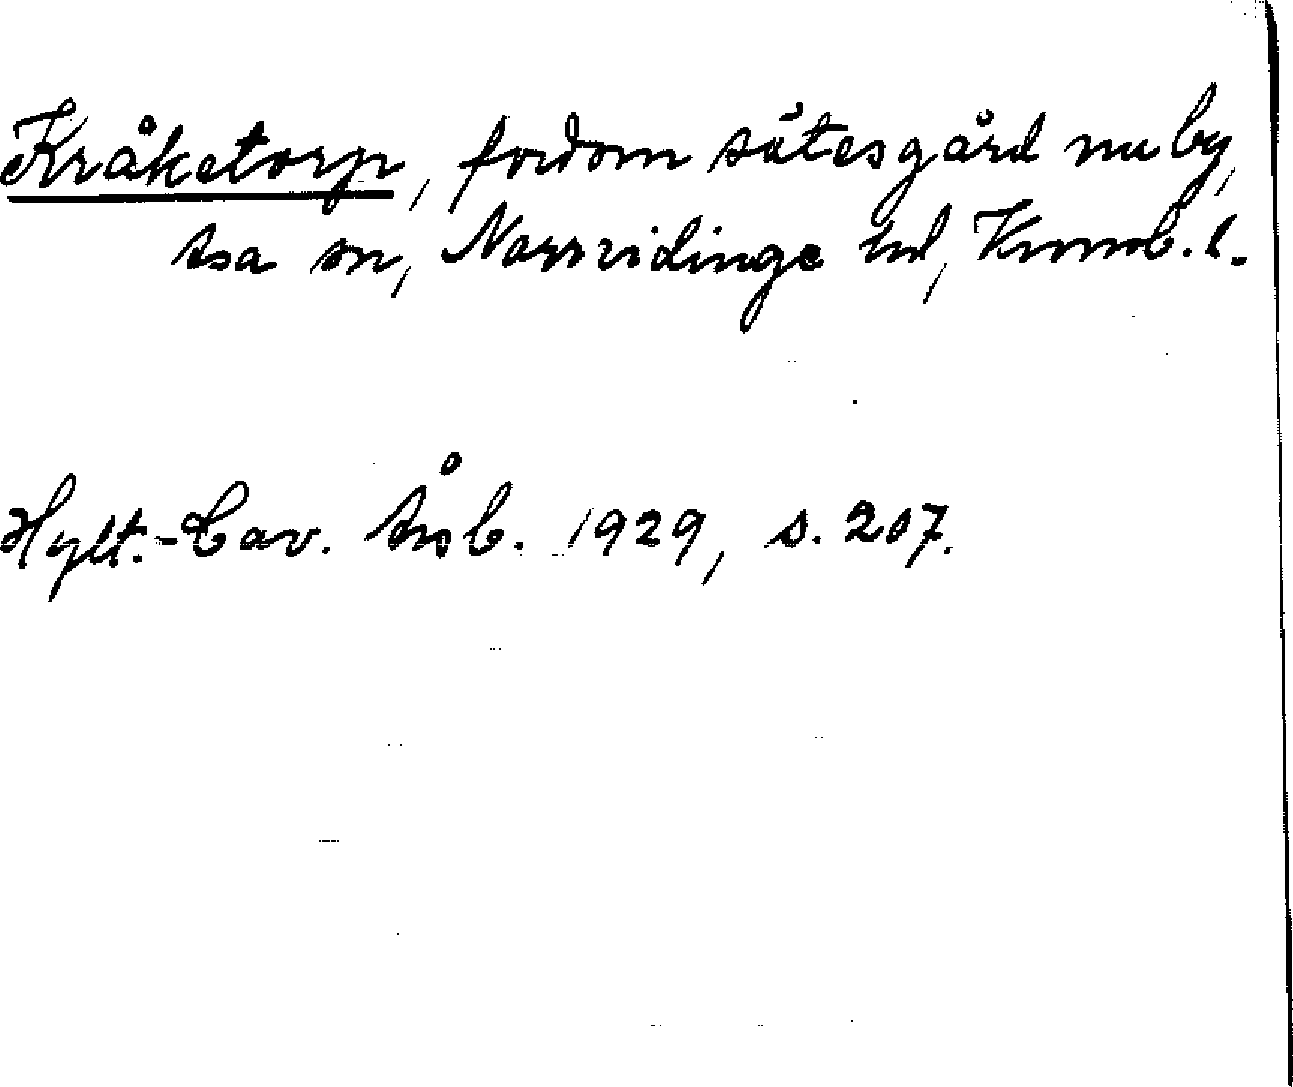 Kråketorp, fordom sätesgård nu by,
Asa sn, Norrvidinge hd, Kronob. l.
Hylt.-Cav. Årsb. 1929, s. 207.